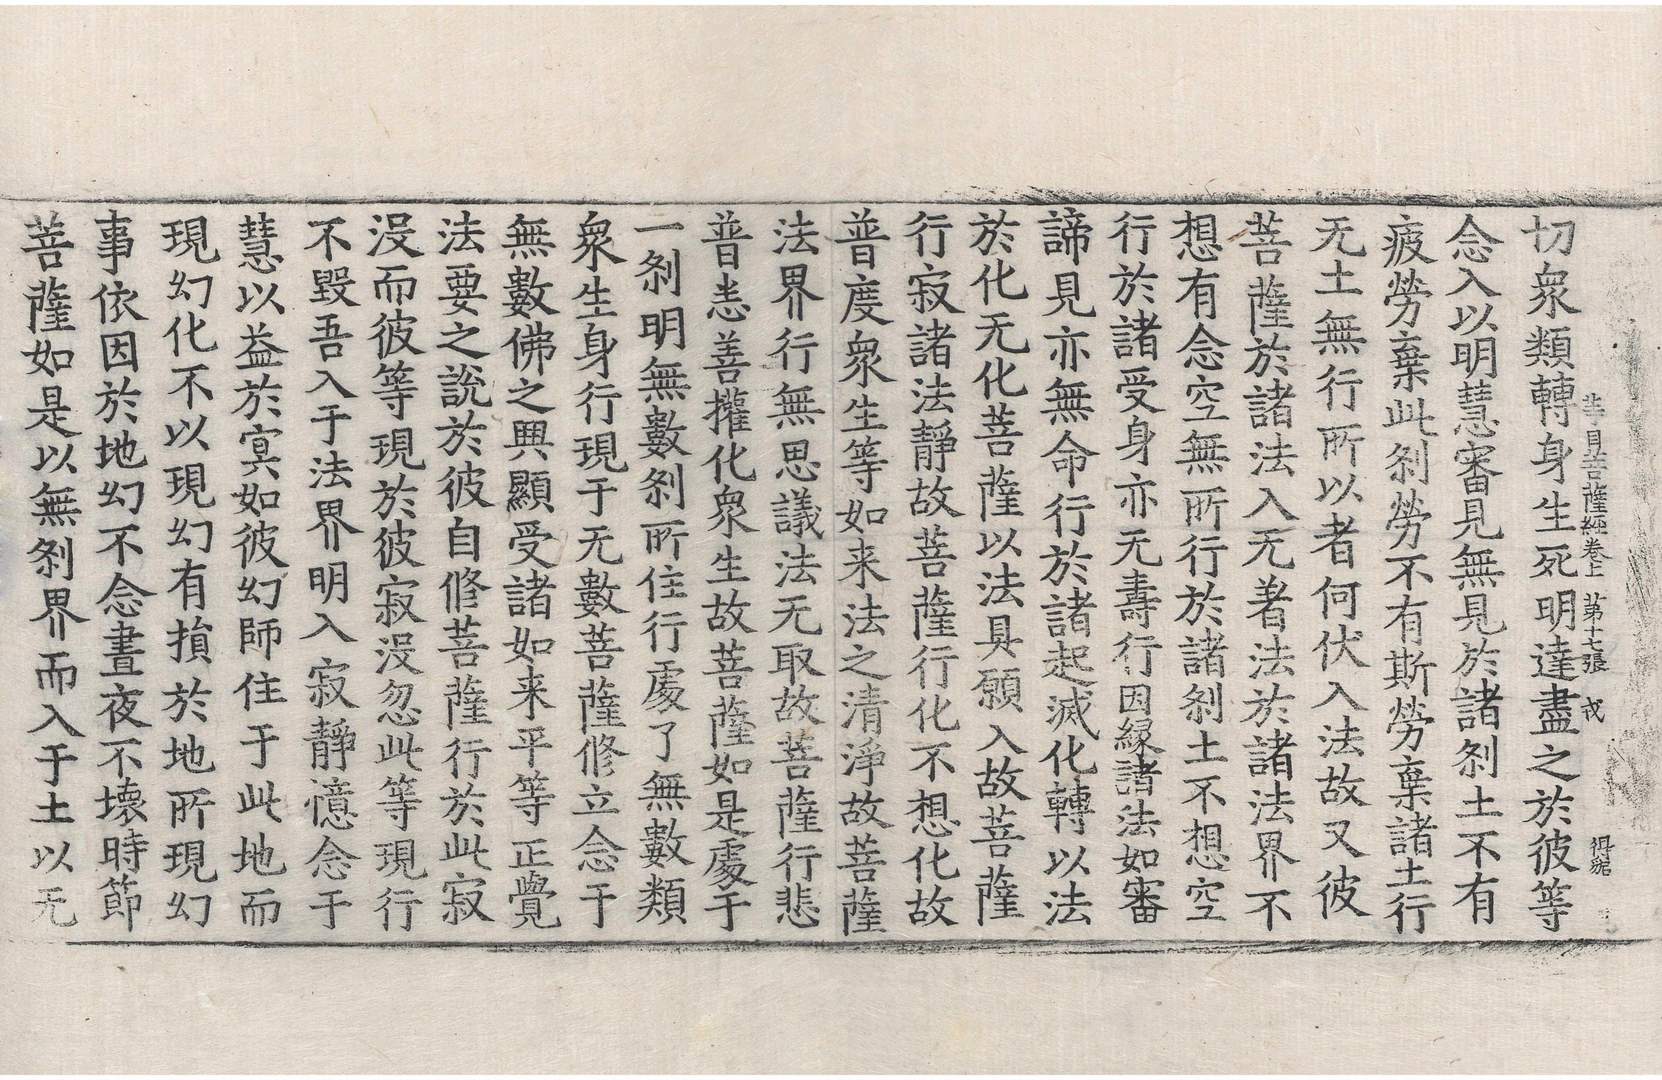 切衆類轉身生死明達盡之於彼等
念入以明慧審見無見於諸刹土不有
疲勞棄此刹勞不有斯勞棄諸土行
无土無行所以者何伏入法故又彼
菩薩於諸法入无著法於諸法界不
想有念空無所行於諸刹土不想空
行於諸受身亦无壽行因緣諸法如審
諦見亦無命行於諸起滅化轉以法
於化无化菩薩以法具願入故菩薩
行寂諸法靜故菩薩行化不想化故
普度衆生等如来法之清淨故菩薩
法界行無思議法无取故菩薩行悲
普恚善權化衆生故菩薩如是處于
一刹明無數刹所住行處了無數類
衆生身行現于无數菩薩修立念于
無數佛之興顯受諸如来平等正覺
法要之說於彼自修菩薩行於此寂
没而彼等現於彼寂没忽此等現行
不毀吾入于法界明入寂靜憶念于
慧以益於冥如彼幻師住于此地而
現幻化不以現幻有損於地所現幻
事依因於地幻不念晝夜不壞時節
菩薩如是以無刹界而入于土以无
目菩薩經卷上 第十七張 戎